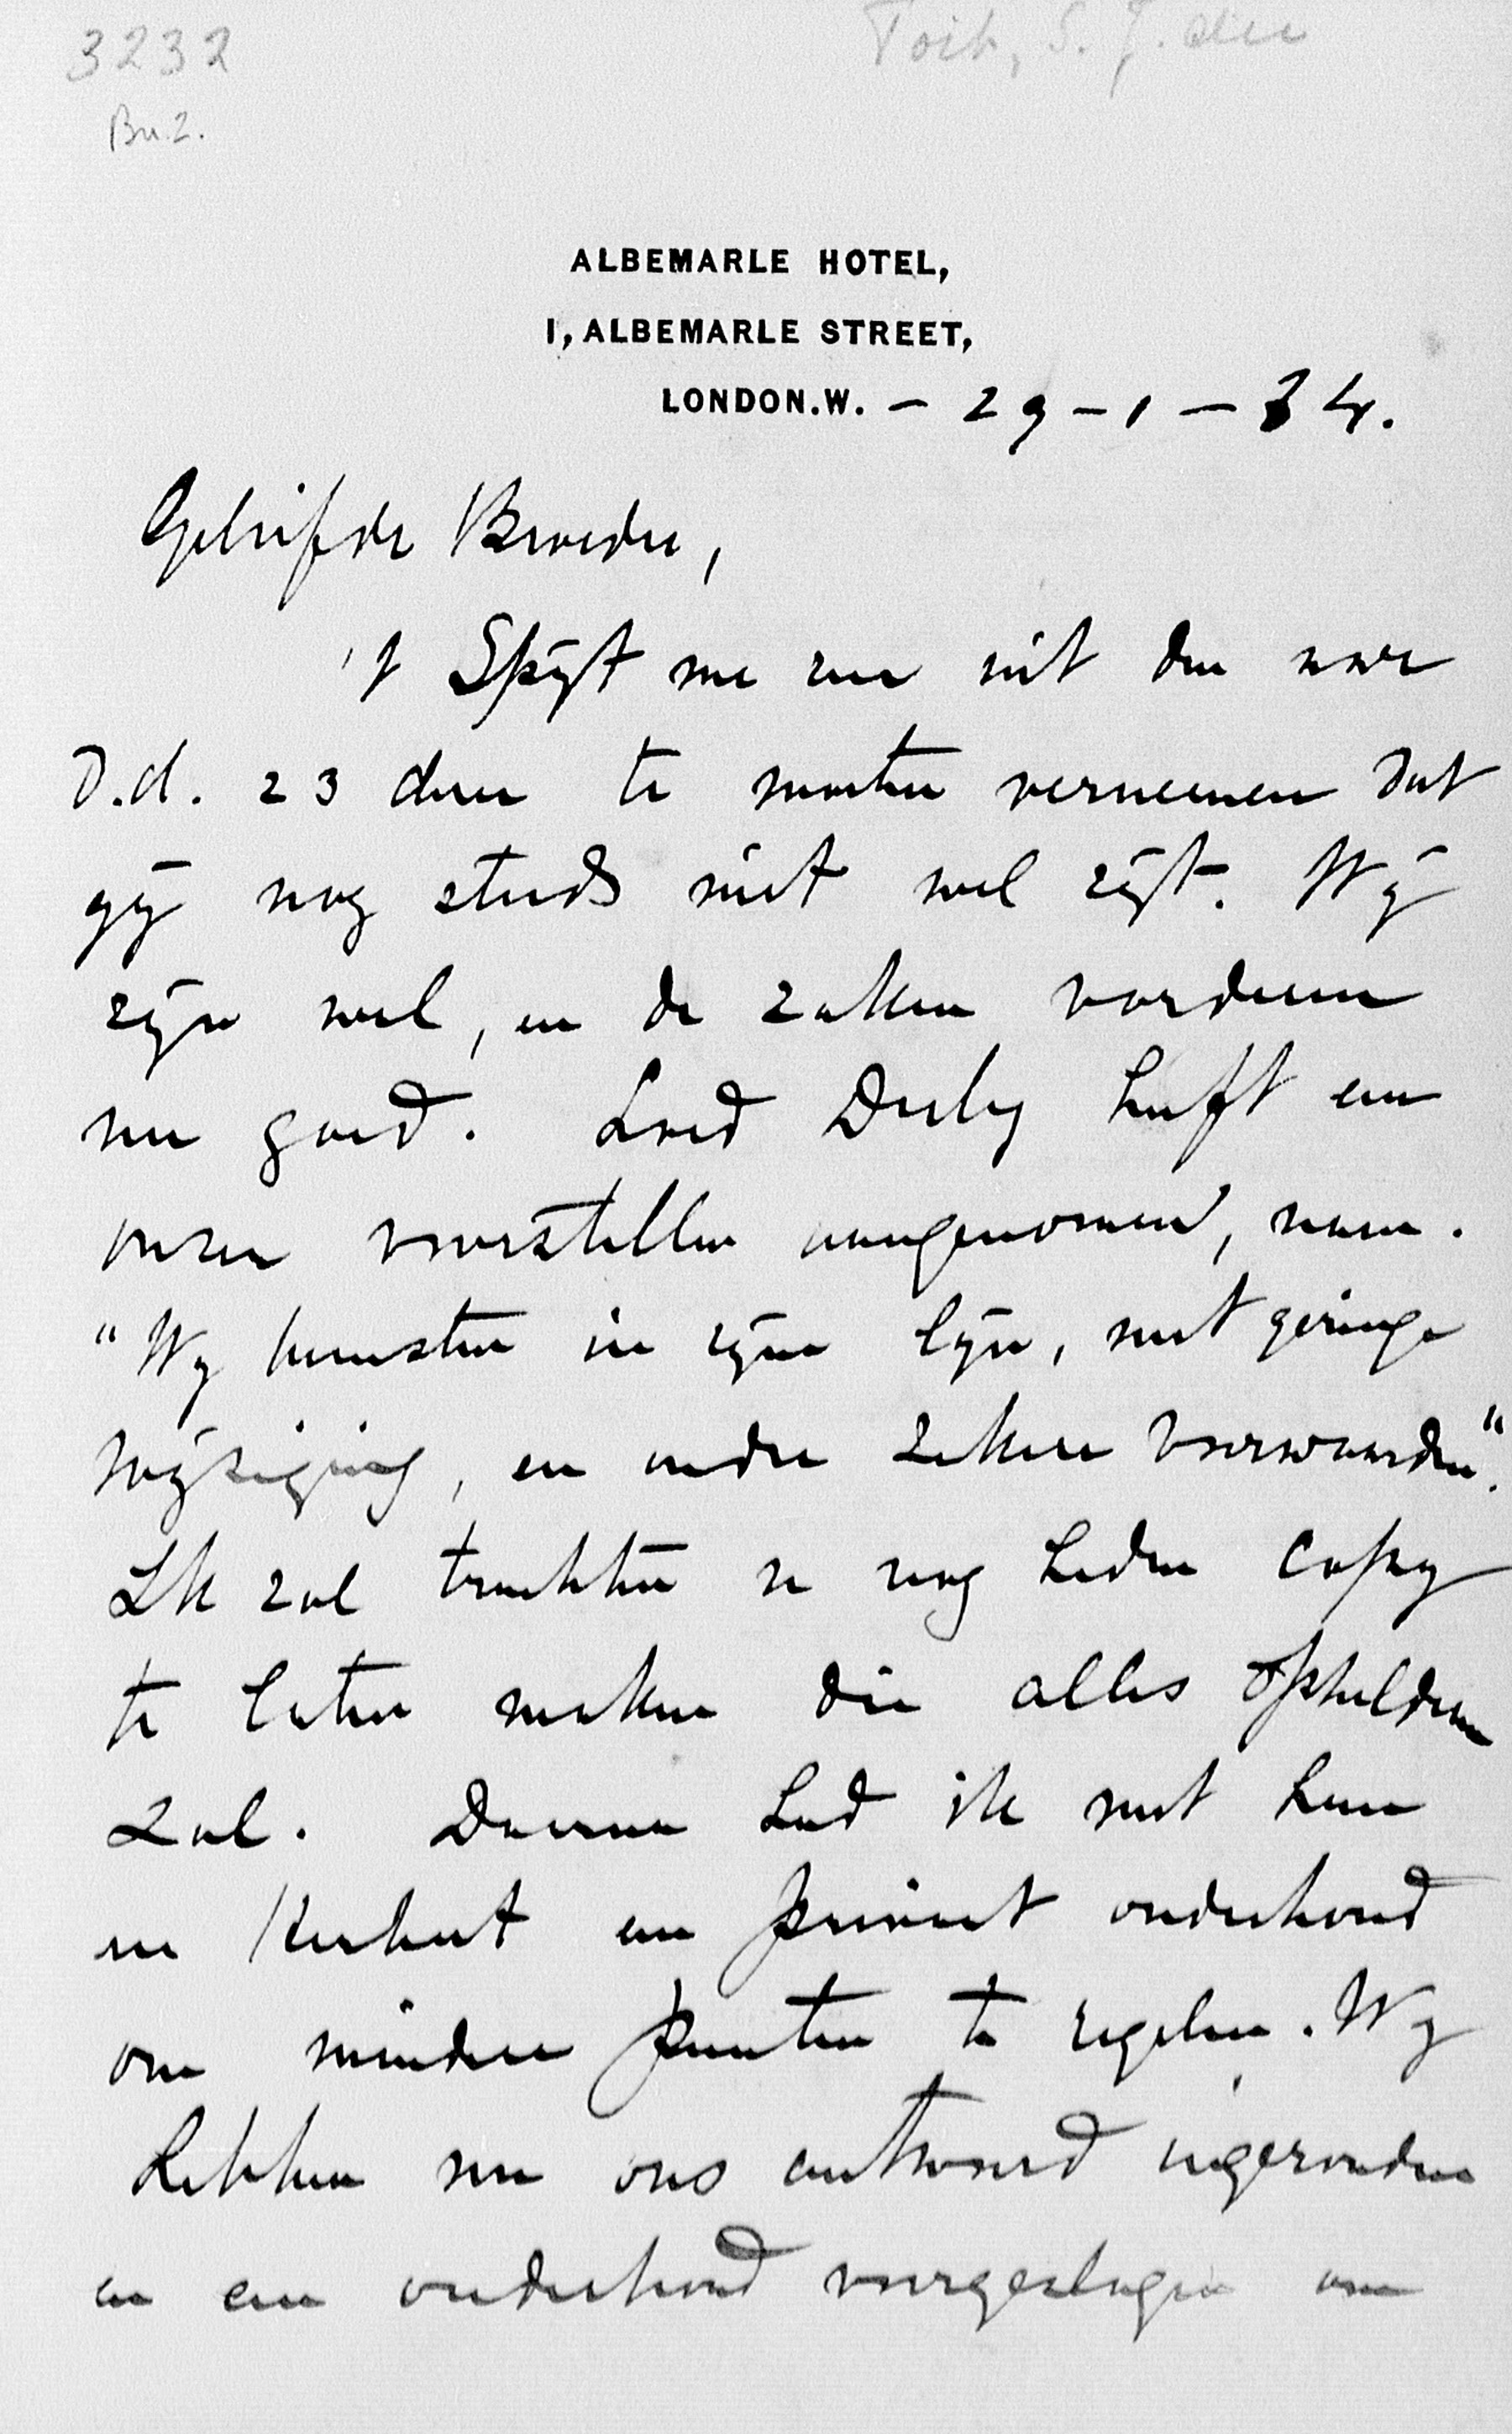 3232
Toit, S. J. du
Bu 2.
ALBEMARLE HOTEL,
1, ALBEMARLE STREET,
LONDON.W. - 29-1-84.
Geliefde Broeder,
't Spijt me zeer uit den uwe
d.d. 23 dezer te moeten vernemen dat
gij nog steeds niet wel zijt. Wij
zijn wel, en de zaken vorderen
nu goed. Lord Derby heeft een
onzer voorstellen aangenomen, nam.
"Wy berusten in zijne lijn, met geringe
wijziging, en onder zekere voorwaarden".
Ik zal trachten er nog heden copy
te laten maken die alles ophelderen
zal. Daarna had ik met hem
en Herbert een privaat onderhoud
om mindere punten te regelen. Wy
hebben nu ons antwoord ingezonden
en een onderhoud voorgeslagen om